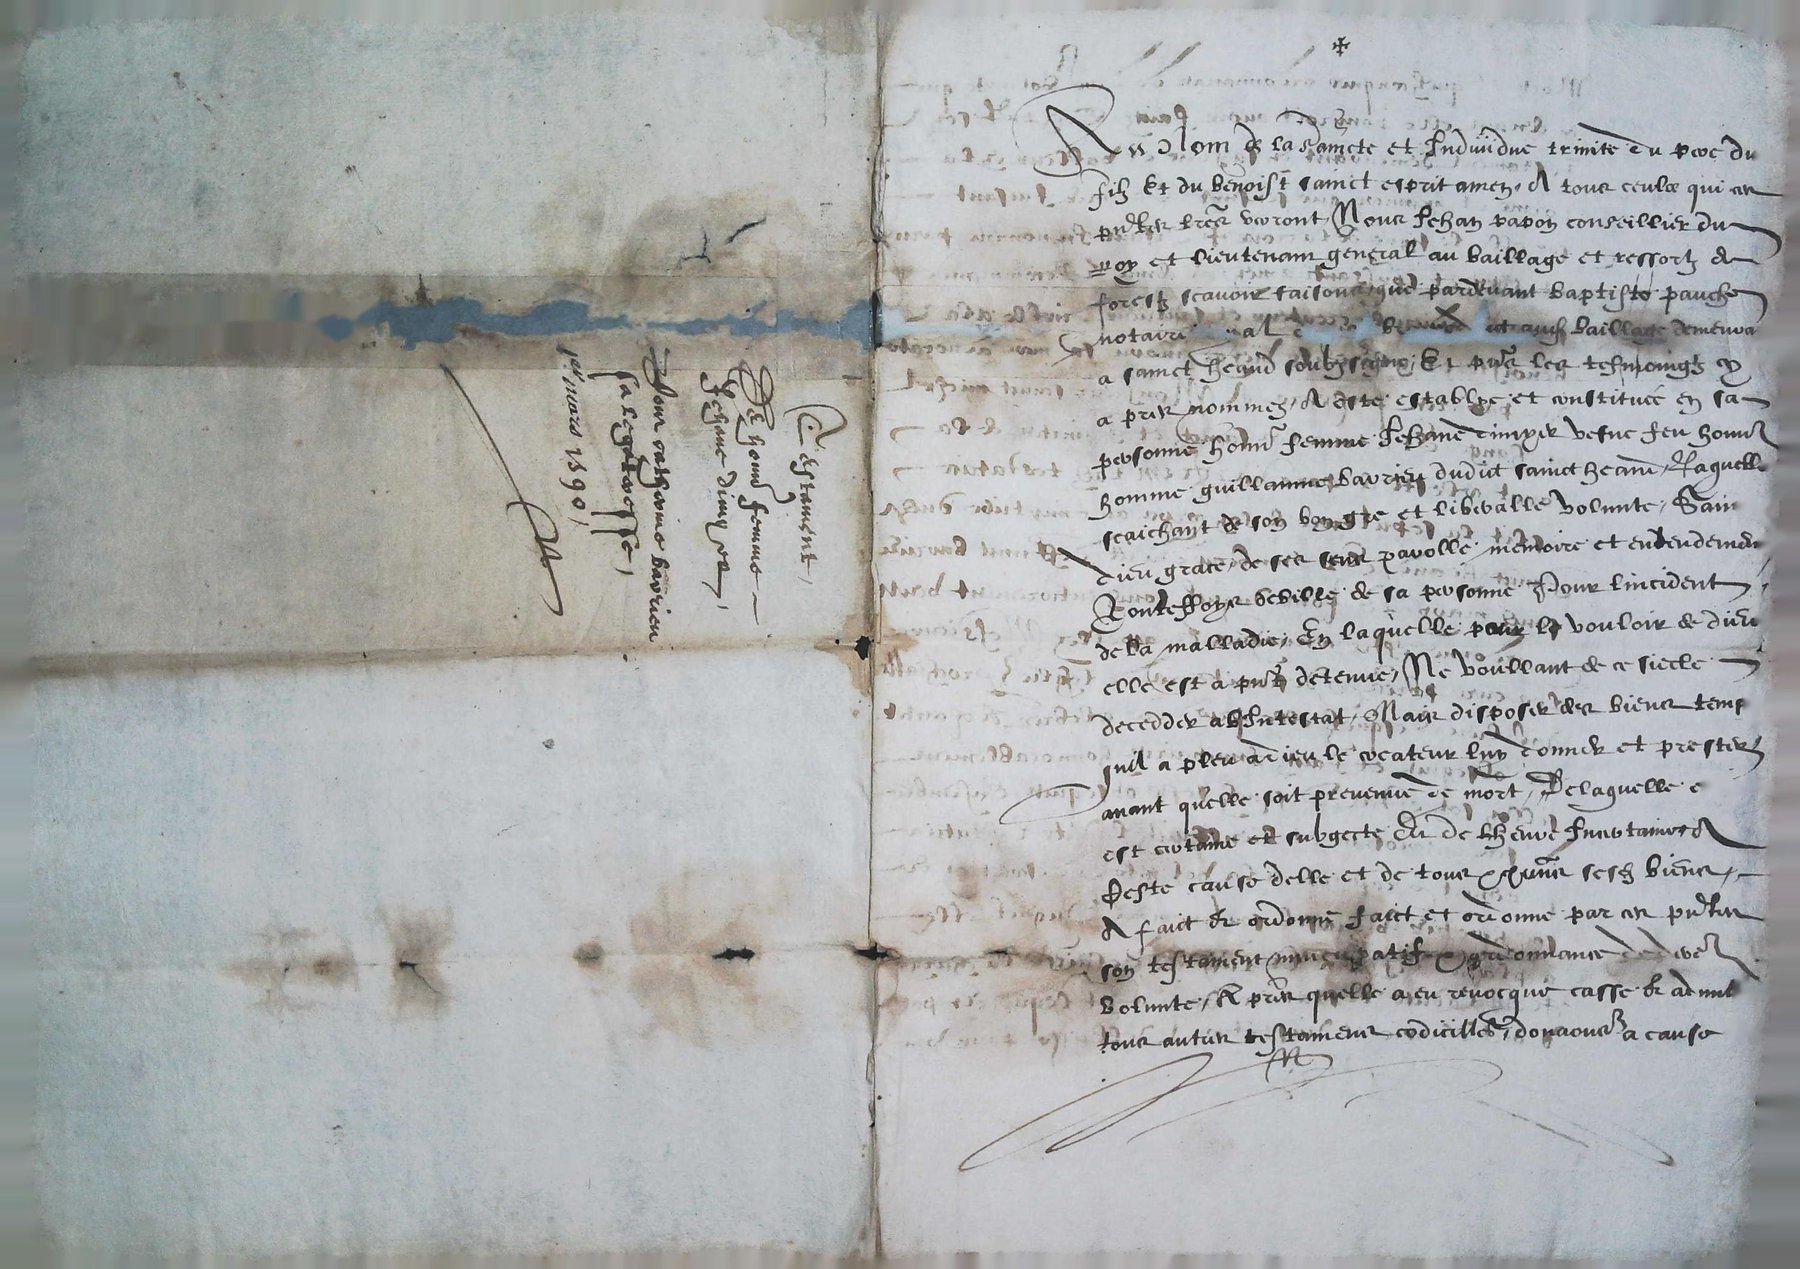 Testament,
De honn femme
Jehane dimyer,
Pour catherine baurieu
sa legateresse,
1er mars 1590,
Au Nom de la saincte et Individue trinite du pere du
filz Et du benoist sainct esprit amen, A tous ceulx qui ces
pntes lres verront, Nous Jehan papon conseillier du
roy et lieutenant general au bailliage et ressort de
forestz scavoir faisons, que pardevant baptiste pauche
notaire bailliage demeura
a sainct heand soubzsigne, Et pns les tesmoingz cy
apres nommez, A este establye et constituee en sa
personne honn femme Jehane dimyer vefue feu honn
homme guillaume baurieu dudit sainct heand, Laquelle
scaichant de son bon gre et liberalle volunte, Sain
dieu grace, de ses sens parolle memoire et entendemen
Touteffoys debille de sa personne Pour lincident
de la malladie, En laquelle pour le vouloir de dieu
elle est a pnt detenue, Ne voullant de ce siecle
decedder abIntestat, Mais disposer des biens temp
quil a pleu a dieu le createur luy donner et prester
avant quelle soit prevenue de mort, De laquelle e
est certaine et subgecte Et de lheure Incertaine A
Ceste cause delle et de tous ses biens,
A faict et ordonne faict et ordonne par ces pntes
son testament nuncupatif ordonnance de dere
volunte, Apres quelle a eu revocque casse et adnul
tous autres testamens codicilles, donaons a cause